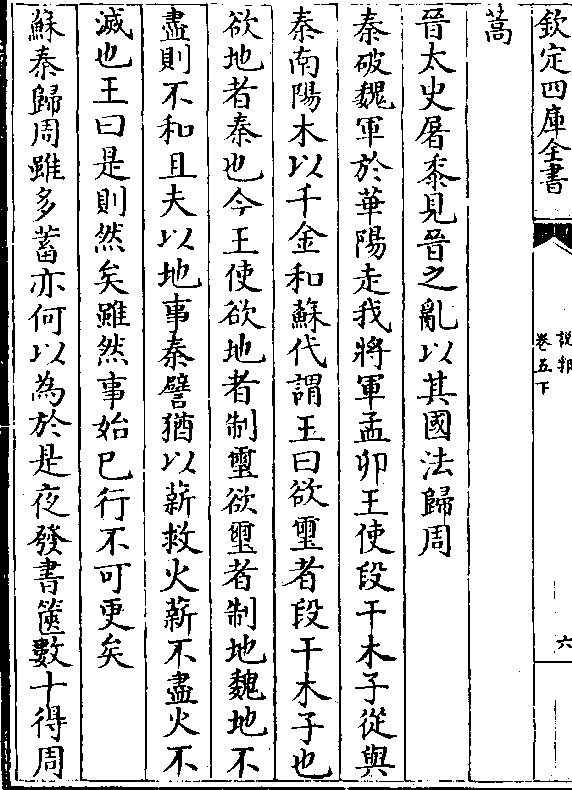 欽定四庫全書
說郛
卷五下
六
蒿
晉太史屠黍見晉之亂以其國法歸周
秦破魏軍於華陽走我將軍孟卯王使段干木子從與
秦南陽木以千金和蘇代謂王曰欲璽者段干木子也
欲地者秦也今王使欲地者制璽欲璽者制地魏地不
盡則不和且夫以地事秦譬猶以薪救火薪不盡火不
滅也王曰是則然矣雖然事始已行不可更矣
蘇秦歸周雖多蓄亦何以為於是夜發書篋數十得周